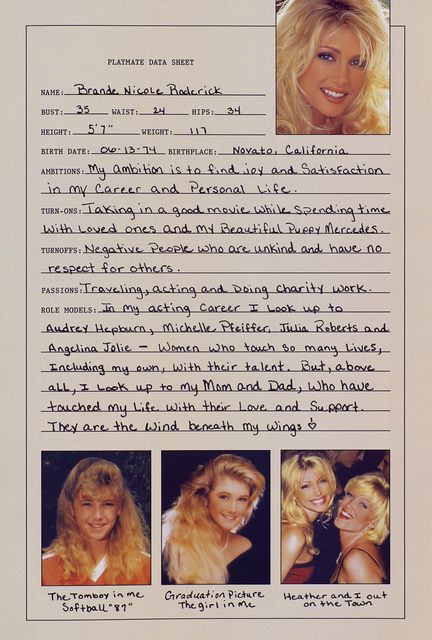 PLAYMATE DATA SHEET
NAME: Brande Nicole Roderick
BUST: 35 WAIST: 24 HIPS: 34
HEIGHT: 5'7" WEIGHT: 117
BIRTH DATE: 06-13-74 BIRTHPLACE: Novato, California
AMBITIONS: My ambition is to find joy and Satisfaction
in my Career and Personal Life.
TURN-ONS: Taking in a good movie while Spending time
with Loved ones and my Beautiful Puppy Mercedes.
TURNOFFS: Negative People who are unkind and have no
respect for others.
PASSIONS: Traveling, acting and Doing Charity work.
ROLE MODELS: In my acting Career I Look up to
Audrey Hepburn, Michelle Pfeiffer, Julia Roberts and
Angelina Jolie — Women who touch so many Lives,
Including my own, with their talent. But, above
all, I Look up to my Mom and Dad, who have
touched my Life with their Love and Support.
They are the Wind beneath my Wings
The Tomboy in me
Softball "87"
Graduation Picture
The girl in me
Heather and I out
on the Town